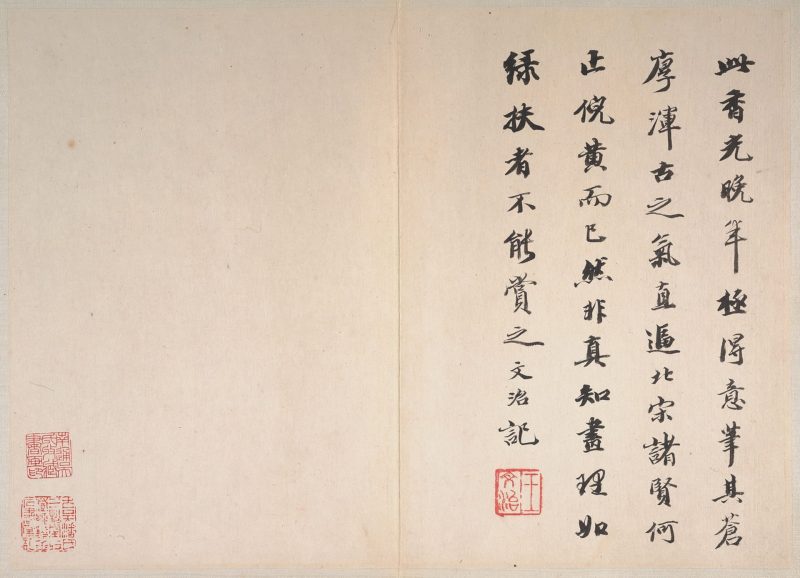 此香光晚年極得意筆其蒼
厚渾古之氣直逼北宋諸賢何
止倪黃而已然非真知畫理如
緑扶者不能賞之文治記
王文治